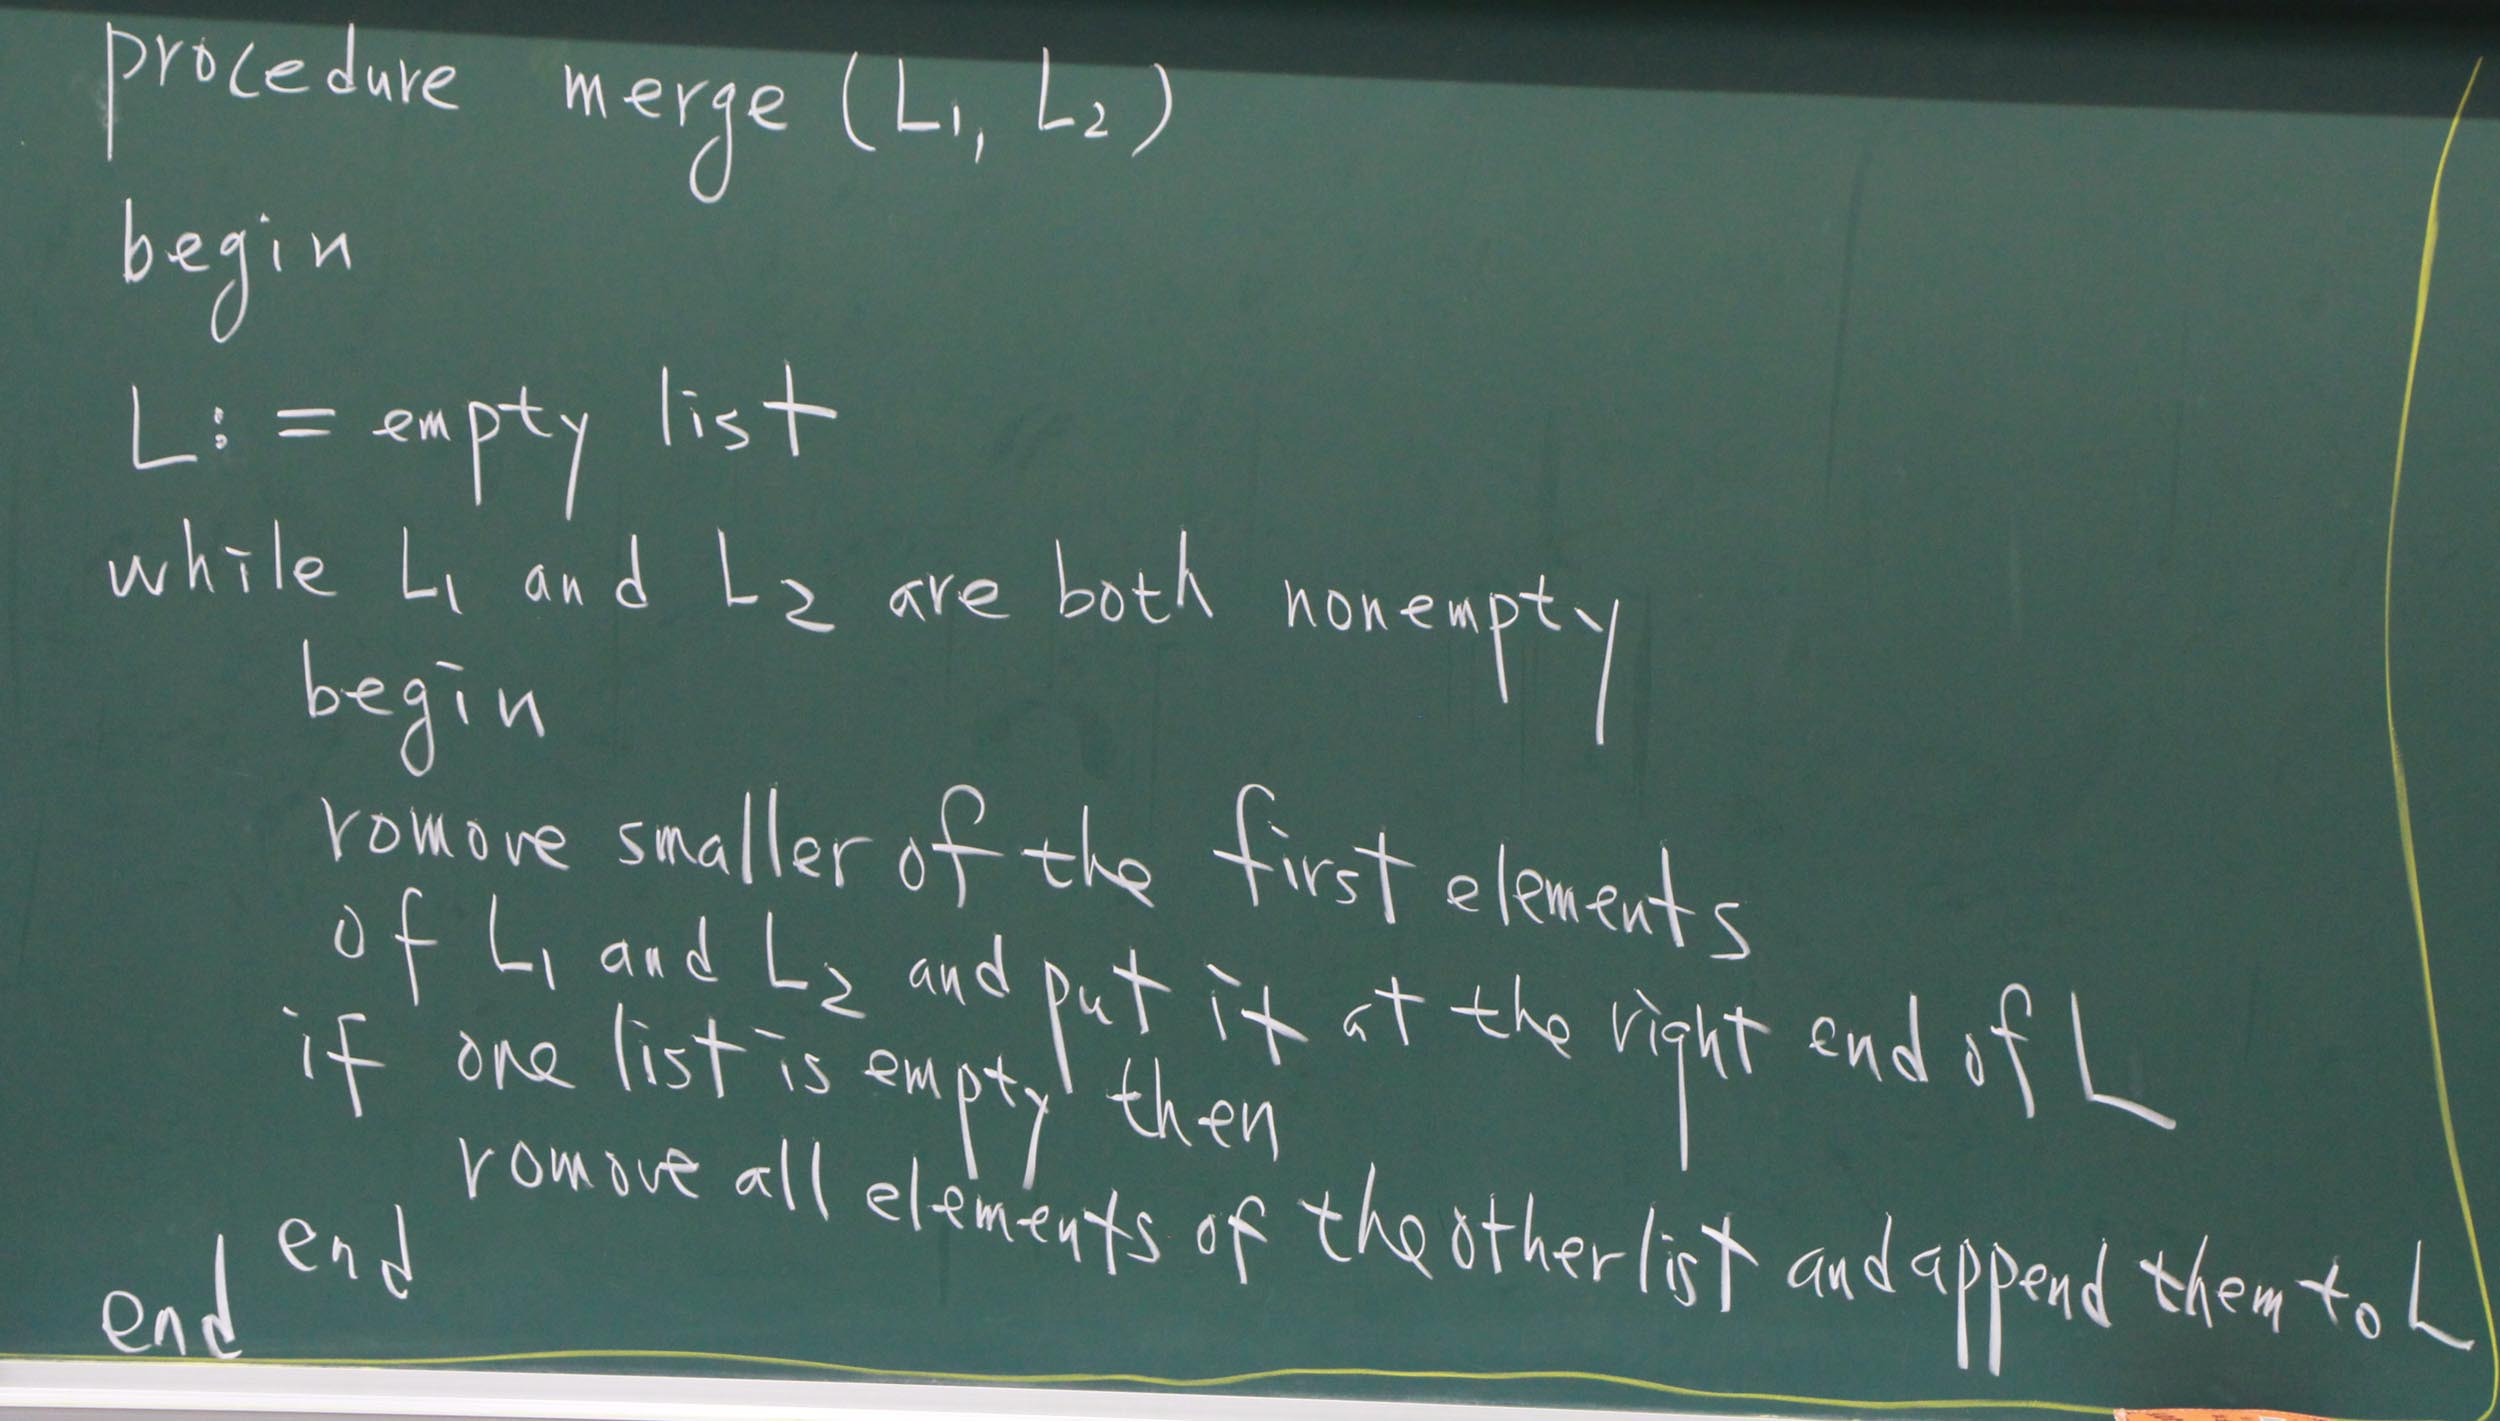 procedure merge (L1, L2)
begin
L := empty list
while L1 and L2 are both nonempty
begin
romove smaller of the first elements
of L1 and L2 and put it at the right end of L
if one list is empty then
romove all elements of the other list and append them to L
end
end